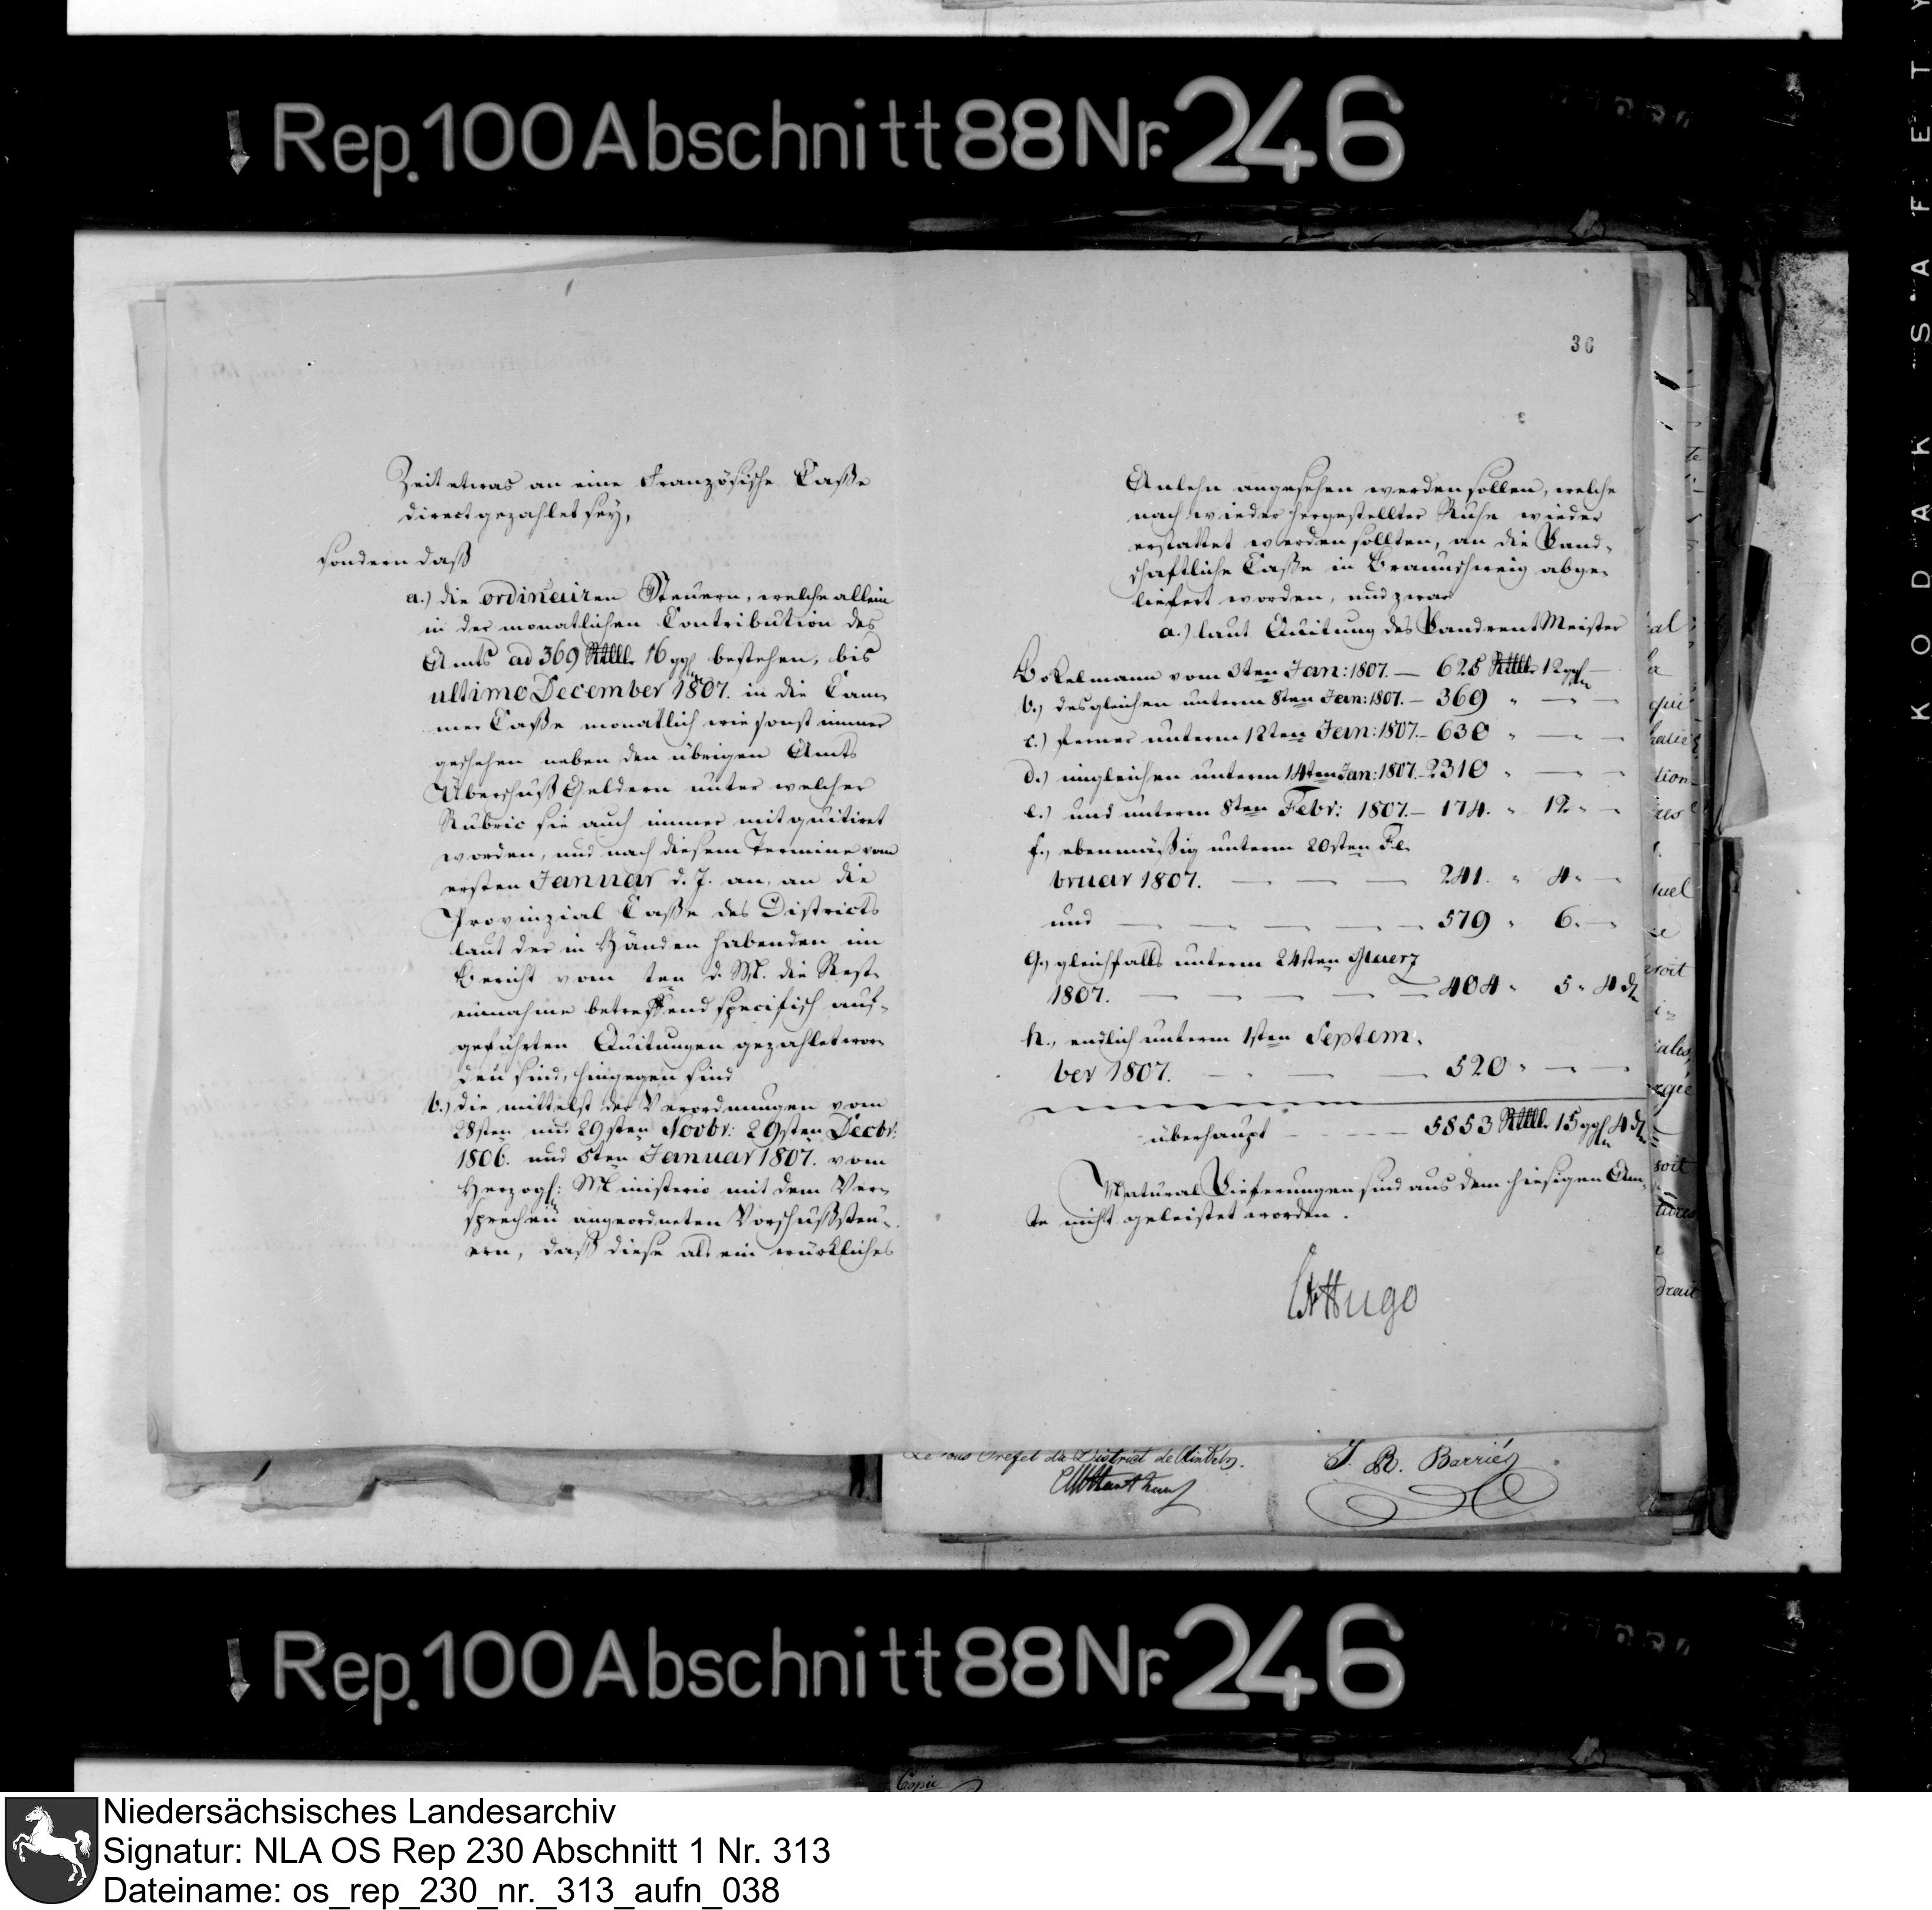 Rep. 100 Abschnitt 88 Nr. 246
KODAK SAFETY
36
Zeit etwas an eine Französische Casse
direct gezahlet sey,
sondern daß
a.) die ordinairen Steuern, welche allein
in der monatlichen Contribution des
Amts ad 369 Rthlr. 16 ggl bestehen, bis
ultimo December 1807. in die Cam-
mer Casse monatlich wie sonst immer
geschehen neben den übrigen Amts
Überschuß Geldern unter welcher
Rubric sie auch immer mit quitiret
worden, und nach diesem Termine vom
ersten Januar d. J. an, an die
Provinzial Casse des Districts
laut der in Händen habenden im
Bericht vom ten d. M. die Rest-
einnahme betreffend specifisch auf-
geführten Quitungen gezahlet wor-
den sind, hingegen sind
b.) die mittelst der Verordnungen vom
28sten und 29sten Novbr: 29sten Decbr:
1806. und 5ten Januar 1807. vom
Herzogl: Ministerio mit dem Ver-
sprechen angeordneten Vorschußsteu-
ern, daß diese als ein würkliches
Anlehn angesehen werden sollen, welche
nach wieder hergestellter Ruhe wieder
erstattet werden sollten, an die Land-
schaftliche Casse in Braunschweig abge-
liefert worden, und zwar
a.) laut Quitung des Landrent Meister
Bokelmann vom 3ten Jan: 1807. — 625 Rthlr. 12 ggl —
b.) desgleichen unterm 8ten Jan: 1807. — 369 " — —
c.) ferner unterm 12ten Jan: 1807. — 630 " — —
d.) imgleichen unterm 14ten Jan: 1807. — 2310 " — —
e.) und unterm 8ten Febr: 1807. — 174. " 12. " —
f.) ebenmäßig unterm 20sten Fe-
bruar 1807. — — — 241. " 4. " —
und — — — — — 579 " 6. —
g.) gleichfalls unterm 24sten
1807. — — — — — 404 " 5 " 4 d
h.) endlich unterm 1sten Septem-
ber 1807. — — — 520 " — —
überhaupt — — 5853 Rthlr. 15 ggl 4 d
Natural Lieferungen sind aus dem hiesigen Am-
te nicht geleistet worden.
Hugo
Le sous Prefet du District de
J. B. Barriés
Rep. 100 Abschnitt 88 Nr. 246
Copie
Niedersächsisches Landesarchiv
Signatur: NLA OS Rep 230 Abschnitt 1 Nr. 313
Dateiname: os_rep_230_nr._313_aufn_038